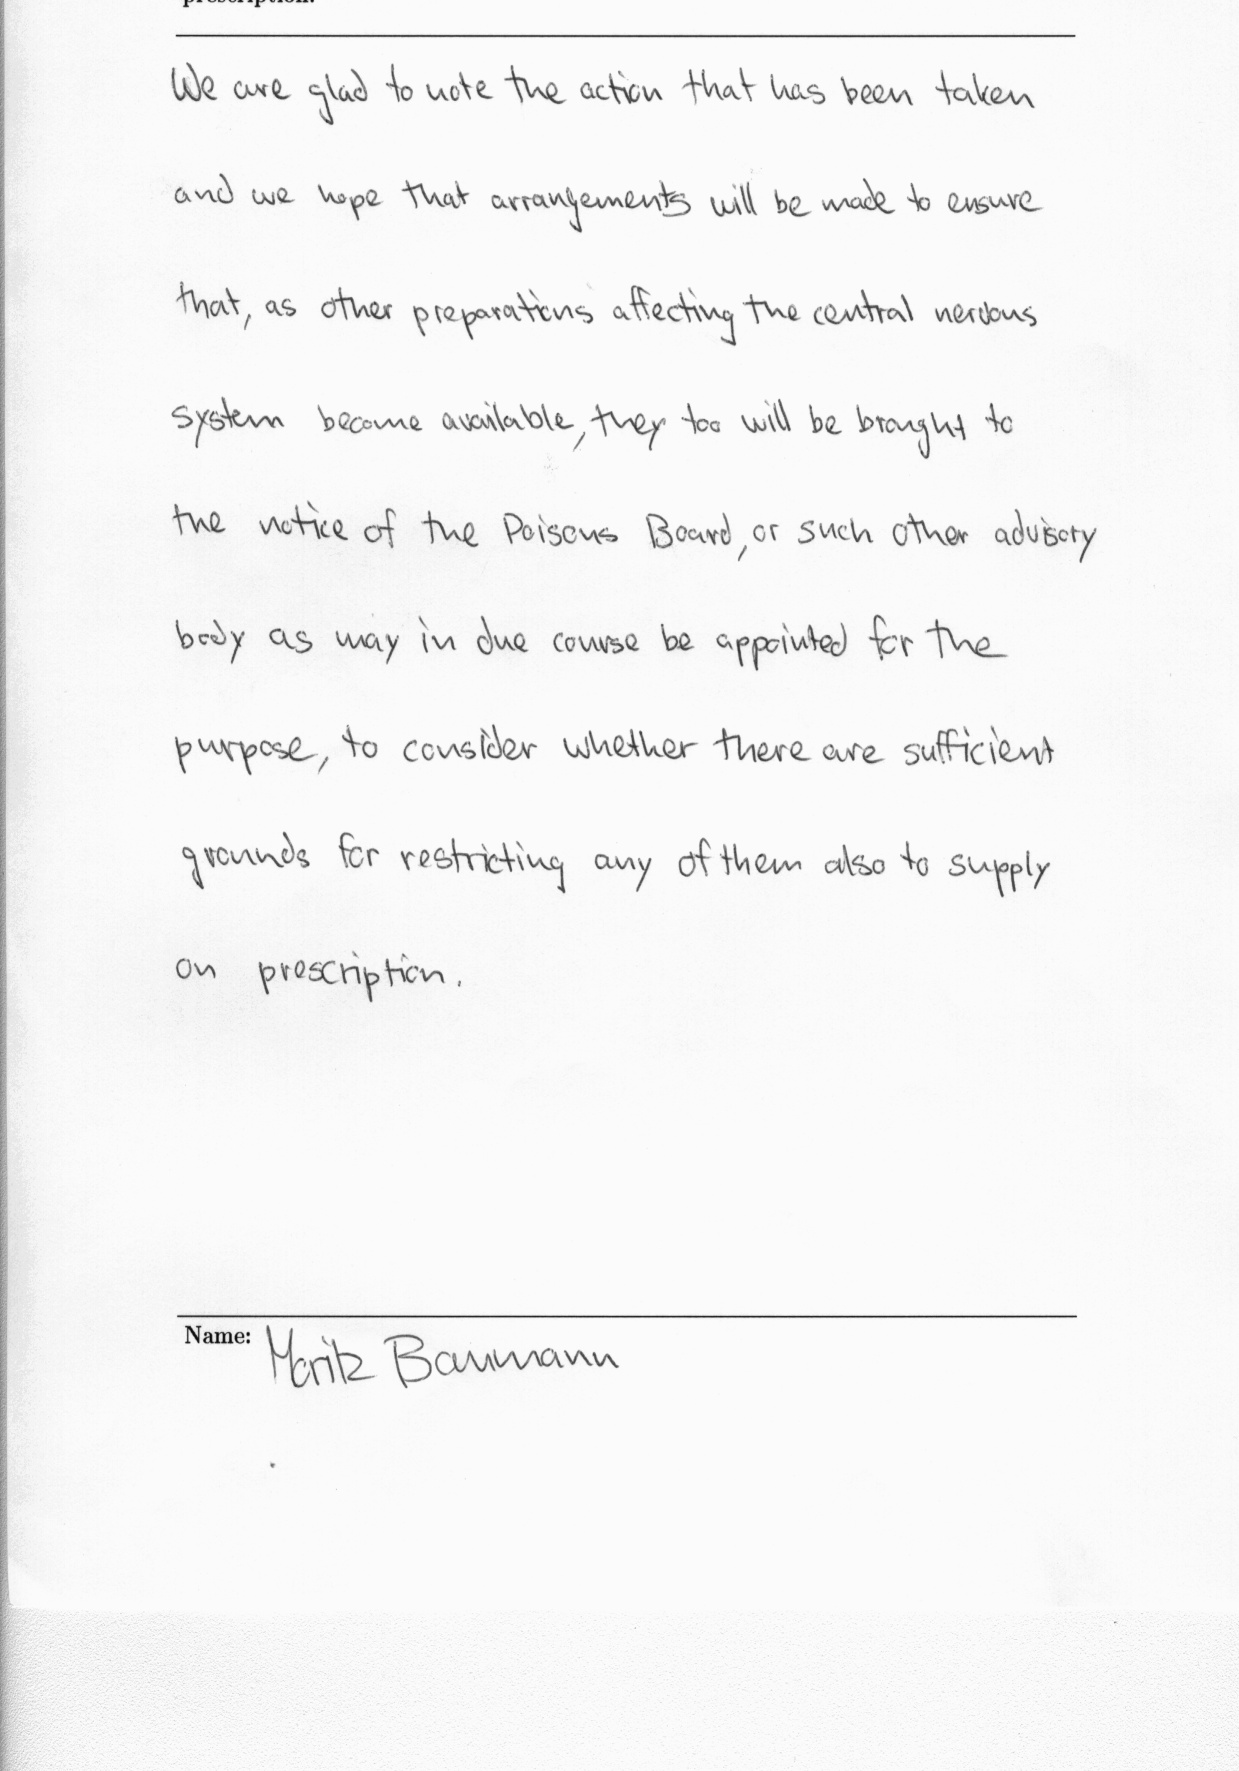 prescription.
We are glad to note the action that has been taken
and we hope that arrangements will be made to ensure
that, as other preparations affecting the central nervous
system become available, they too will be brought to
the notice of the Poisons Board, or such other advisory
body as may in due course be appointed for the
purpose, to consider whether there are sufficient
grounds for restricting any of them also to supply
on prescription.
Name: Moritz Baumann